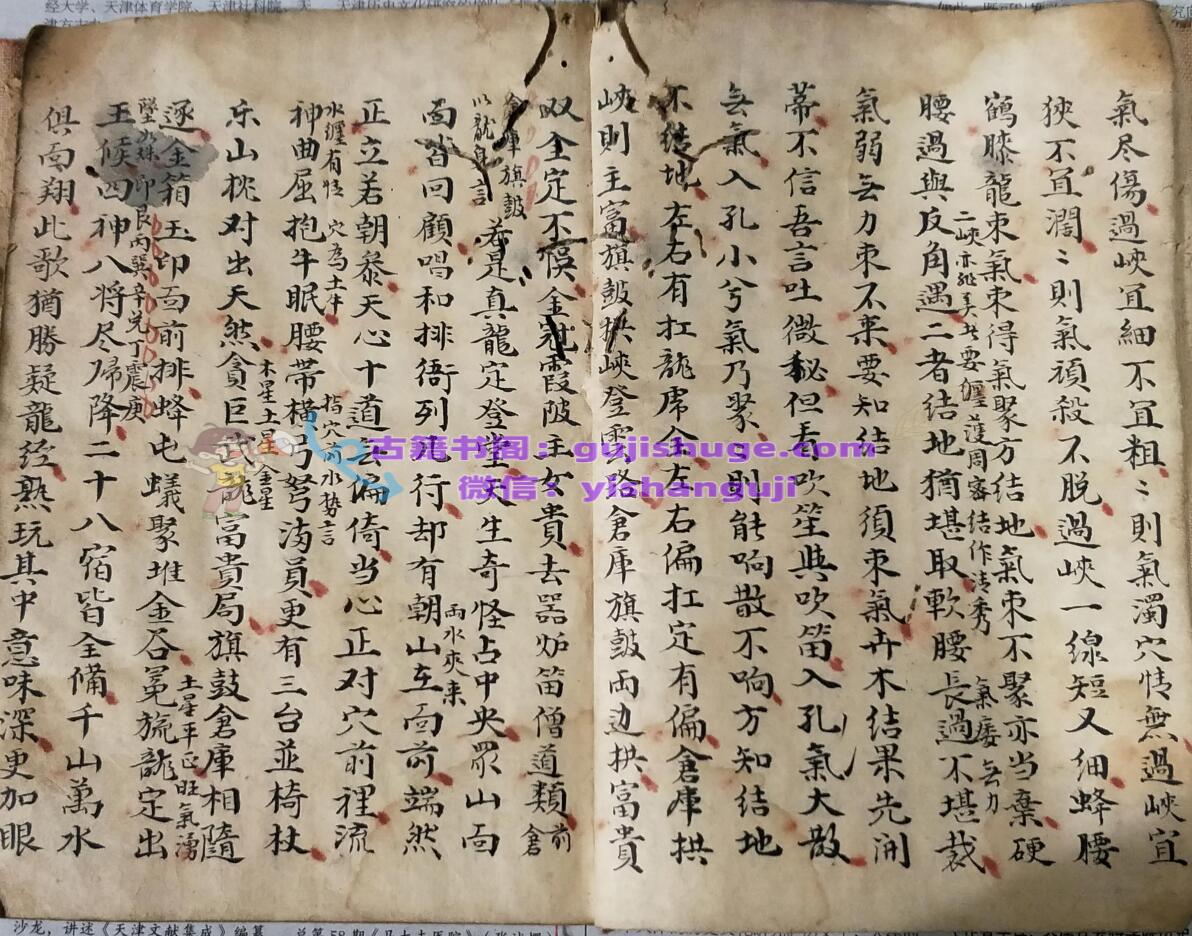 氣尽傷過峽宜細不宜粗〻則氣濁穴情無過峽宜
狹不宜濶〻則氣頑殺不脱過峽一線短又細蜂腰
鶴膝龍束氣束得氣聚方結地氣束不聚亦当棄硬
二峽亦能美只要纒護周審結作清秀 氣痿無力
腰過與反角過二者結地猶堪取軟腰長過不堪裁
氣弱無力束不来要知結地須束氣卉木結果先開
蒂不信吾言吐微秘但看吹笙與吹笛入孔氣大散
無氣入孔小兮氣乃聚則能响散不响方知結地
不結地左右有扛龍虎全左右偏扛定有偏倉庫拱
峽則主富旗鼓拱峽登雲路倉庫旗鼓両边拱富貴
双全定不悮金冠霞陂主女貴去噐炉笛僧道類
前倉
倉庫旗鼓
以龍身言
若是真龍定登堂天生奇怪占中央眾山面
両水夾来
面皆回顧唱和排衙列兀行却有朝山在面前端然
正立若朝叅天心十道去偏倚当心正对穴前裡流
水纒有情 穴為土牛 指穴前水势言
神曲屈抱牛眠腰帶橫弓弩湾員更有三台並椅杖
木星土星金星
乐山枕对出天然貪巨武
富貴局旗鼓倉庫相隨
土星平正旺氣湧
逐金箱玉印面前排蜂屯蟻聚堆金谷冕旒龍定出
艮丙巽辛兑丁震庚
王候四神八将尽归降二十八宿皆全備千山萬水
俱面翔此歌猶勝疑龍经熟玩其中意味深更加眼
古籍书阁：gujishuge.com
微信：yishanguji
经大学、天津体育学院、天津社科院、天
沙龙，讲述《天津文献集成》编纂